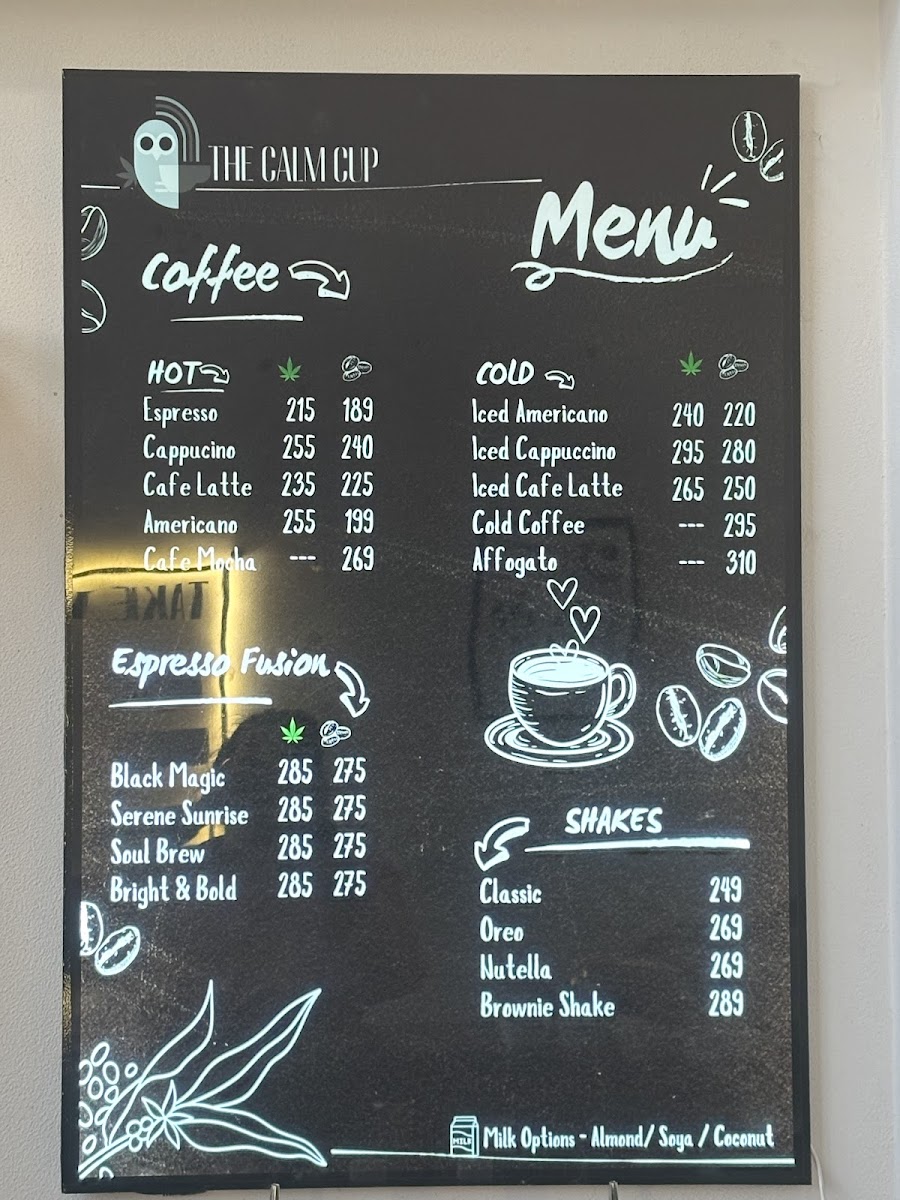 THE CALM CUP
Menu
Coffee
HOT
Espresso 215 189
Cappucino 255 240
Cafe Latte 235 225
Americano 255 199
Cafe Mocha --- 269
COLD
Iced Americano 240 220
Iced Cappuccino 295 280
Iced Cafe Latte 265 250
Cold Coffee --- 295
Affogato --- 310
TAKE
Espresso Fusion
Black Magic 285 275
Serene Sunrise 285 275
Soul Brew 285 275
Bright & Bold 285 275
SHAKES
Classic 249
Oreo 269
Nutella 269
Brownie Shake 289
MILK
Milk Options - Almond/ Soya / Coconut